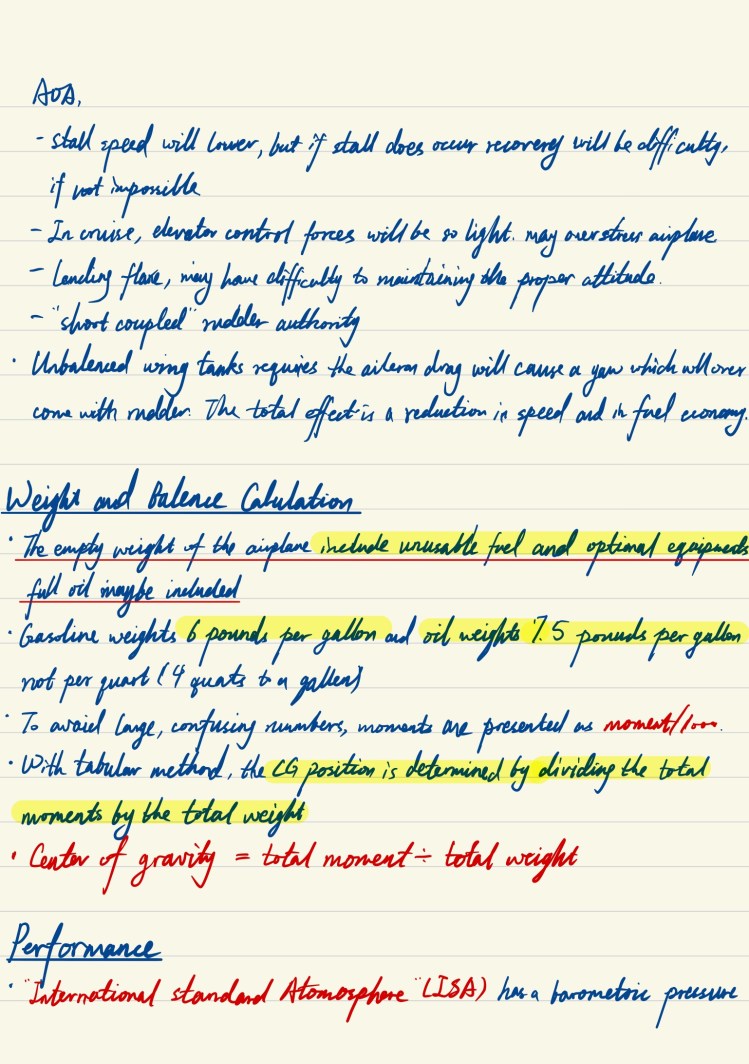 AOA,
- stall speed will lower, but if stall does occur recovery will be difficulty,
if not impossible
- In cruise, elevator control forces will be so light. may overstress airplane
- Landing flare, may have difficulty to maintaining the proper attitude.
- "short coupled" rudder authority
· Unbalenced wing tanks requires the aileron drag will cause a yaw which will over
come with rudder. The total effect is a reduction in speed and in fuel economy.
Weight and Balence Calculation
· The empty weight of the airplane include unusable fuel and optimal equipments
full oil maybe included
· Gasoline weights 6 pounds per gallon and oil weights 7.5 pounds per gallon
not per quart (4 quats to a gallen)
· To avoid large, confusing numbers, moments are presented as moment/1000.
· With tabular method, the CG position is determined by dividing the total
moments by the total weight
· Center of gravity = total moment ÷ total weight
Performance
· "International standard Atomosphere" (ISA) has a barometric pressure